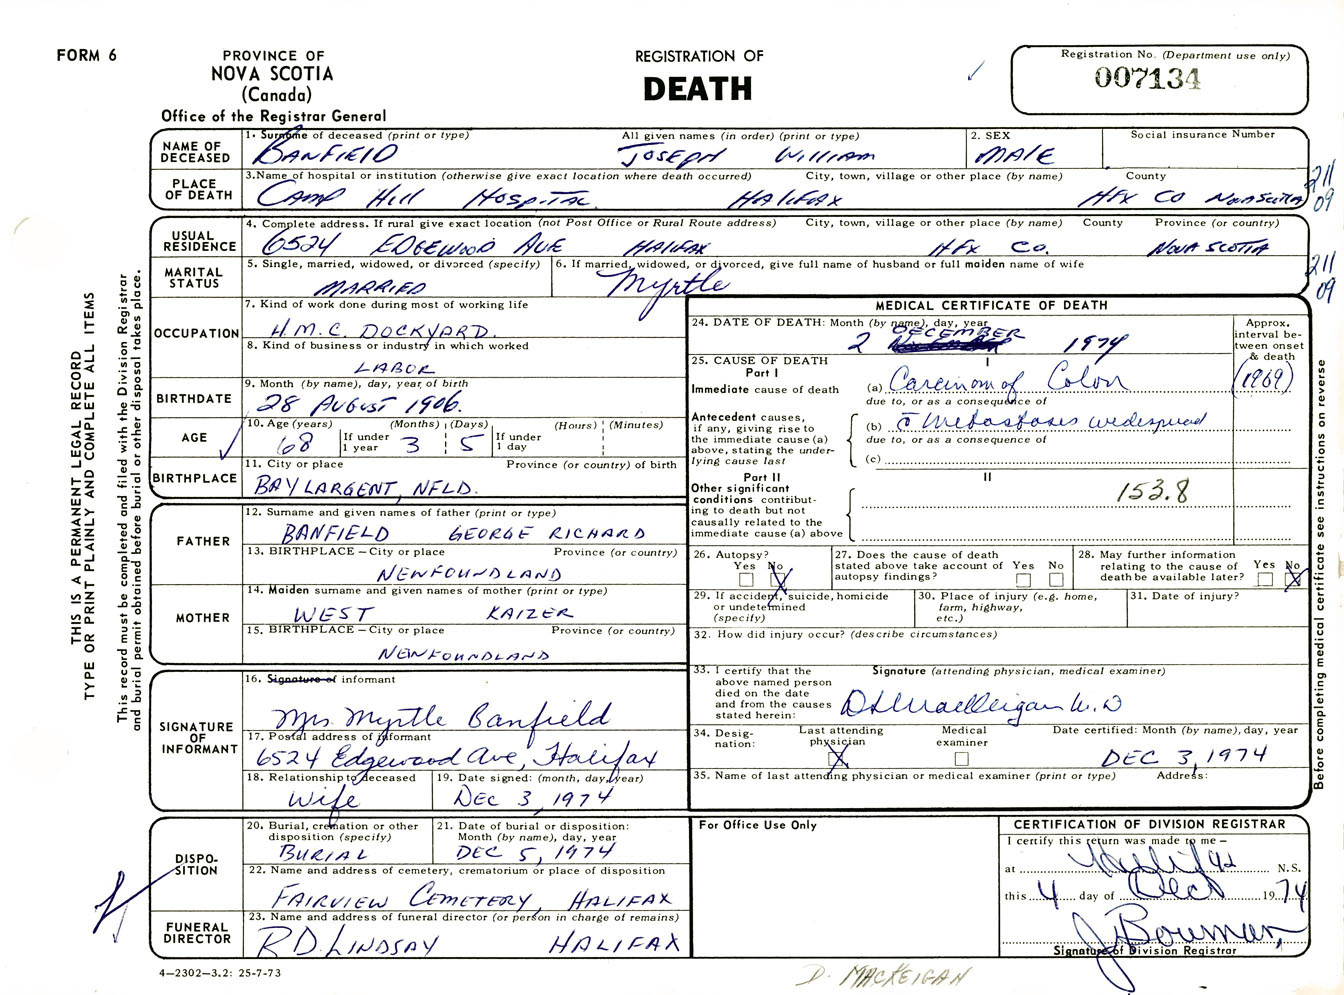 FORM 6
PROVINCE OF
NOVA SCOTIA
(Canada)
Office of the Registrar General
REGISTRATION OF
DEATH
Registration No. (Department use only)
007134
THIS IS A PERMANENT LEGAL RECORD
TYPE OR PRINT PLAINLY AND COMPLETE ALL ITEMS
This record must be completed and filed with the Division Registrar
and burial permit obtained before burial or other disposal takes place.
NAME OF DECEASED
1. Surname of deceased (print or type) All given names (in order) (print or type) 2. SEX Social insurance Number
BANFIELD JOSEPH WILLIAM MALE
PLACE OF DEATH
3. Name of hospital or institution (otherwise give exact location where death occurred) City, town, village or other place (by name) County
CAMP HILL HOSPITAL HALIFAX HFX CO NOVA SCOTIA
211
09
USUAL RESIDENCE
4. Complete address. If rural give exact location (not Post Office or Rural Route address) City, town, village or other place (by name) County Province (or country)
6524 EDGEWOOD AVE HALIFAX HFX CO. NOVA SCOTIA
211
09
MARITAL STATUS
5. Single, married, widowed, or divorced (specify) 6. If married, widowed, or divorced, give full name of husband or full maiden name of wife
MARRIED Myrtle
OCCUPATION
7. Kind of work done during most of working life
H.M.C. DOCKYARD.
8. Kind of business or industry in which worked
LABOR
BIRTHDATE
9. Month (by name), day, year of birth
28 AUGUST 1906.
AGE
10. Age (years) (Months) (Days) (Hours) (Minutes)
68 If under 1 year 3 5 If under 1 day
BIRTHPLACE
11. City or place Province (or country) of birth
BAY LARGENT, NFLD.
FATHER
12. Surname and given names of father (print or type)
BANFIELD GEORGE RICHARD
13. BIRTHPLACE – City or place Province (or country)
NEWFOUNDLAND
MOTHER
14. Maiden surname and given names of mother (print or type)
WEST KAIZER
15. BIRTHPLACE – City or place Province (or country)
NEWFOUNDLAND
SIGNATURE OF INFORMANT
16. Signature of informant
Mrs. Myrtle Banfield
17. Postal address of informant
6524 Edgewood Ave, Halifax
18. Relationship to deceased 19. Date signed: (month, day, year)
Wife DEC 3, 1974
DISPO-SITION
20. Burial, cremation or other disposition (specify) 21. Date of burial or disposition: Month (by name), day, year
BURIAL DEC 5, 1974
22. Name and address of cemetery, crematorium or place of disposition
FAIRVIEW CEMETERY, HALIFAX
FUNERAL DIRECTOR
23. Name and address of funeral director (or person in charge of remains)
R.D. LINDSAY HALIFAX
4–2302–3.2: 25-7-73
MEDICAL CERTIFICATE OF DEATH
24. DATE OF DEATH: Month (by name), day, year
2 DECEMBER 1974
Approx. interval between onset & death
25. CAUSE OF DEATH
Part I
I
Immediate cause of death (a) Carcinoma of Colon (1969)
due to, or as a consequence of
Antecedent causes, if any, giving rise to the immediate cause (a) above, stating the underlying cause last
(b) c̄ Metastases widespread
due to, or as a consequence of
(c)
Part II
II
Other significant conditions contributing to death but not causally related to the immediate cause (a) above
153.8
26. Autopsy? Yes No
27. Does the cause of death stated above take account of autopsy findings? Yes No
28. May further information relating to the cause of death be available later? Yes No
29. If accident, suicide, homicide or undetermined (specify)
30. Place of injury (e.g. home, farm, highway, etc.)
31. Date of injury?
32. How did injury occur? (describe circumstances)
33. I certify that the above named person died on the date and from the causes stated herein:
Signature (attending physician, medical examiner)
34. Designation: Last attending physician Medical examiner Date certified: Month (by name), day, year
DEC 3, 1974
35. Name of last attending physician or medical examiner (print or type) Address:
Before completing medical certificate see instructions on reverse
For Office Use Only
CERTIFICATION OF DIVISION REGISTRAR
I certify this return was made to me –
at Halifax N.S.
this 4 day of Dec 1974
J. Bowman
Signature of Division Registrar
D. MACKEIGAN